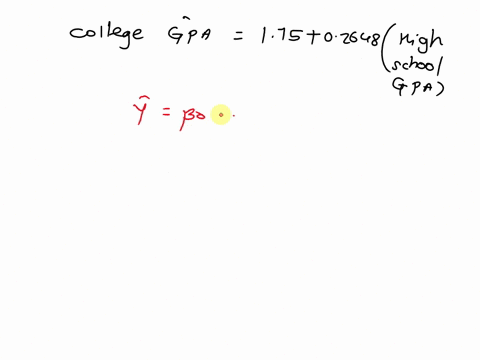 college GP̂A = 1.75+0.2648(High
school
GPA)
Ŷ = β0